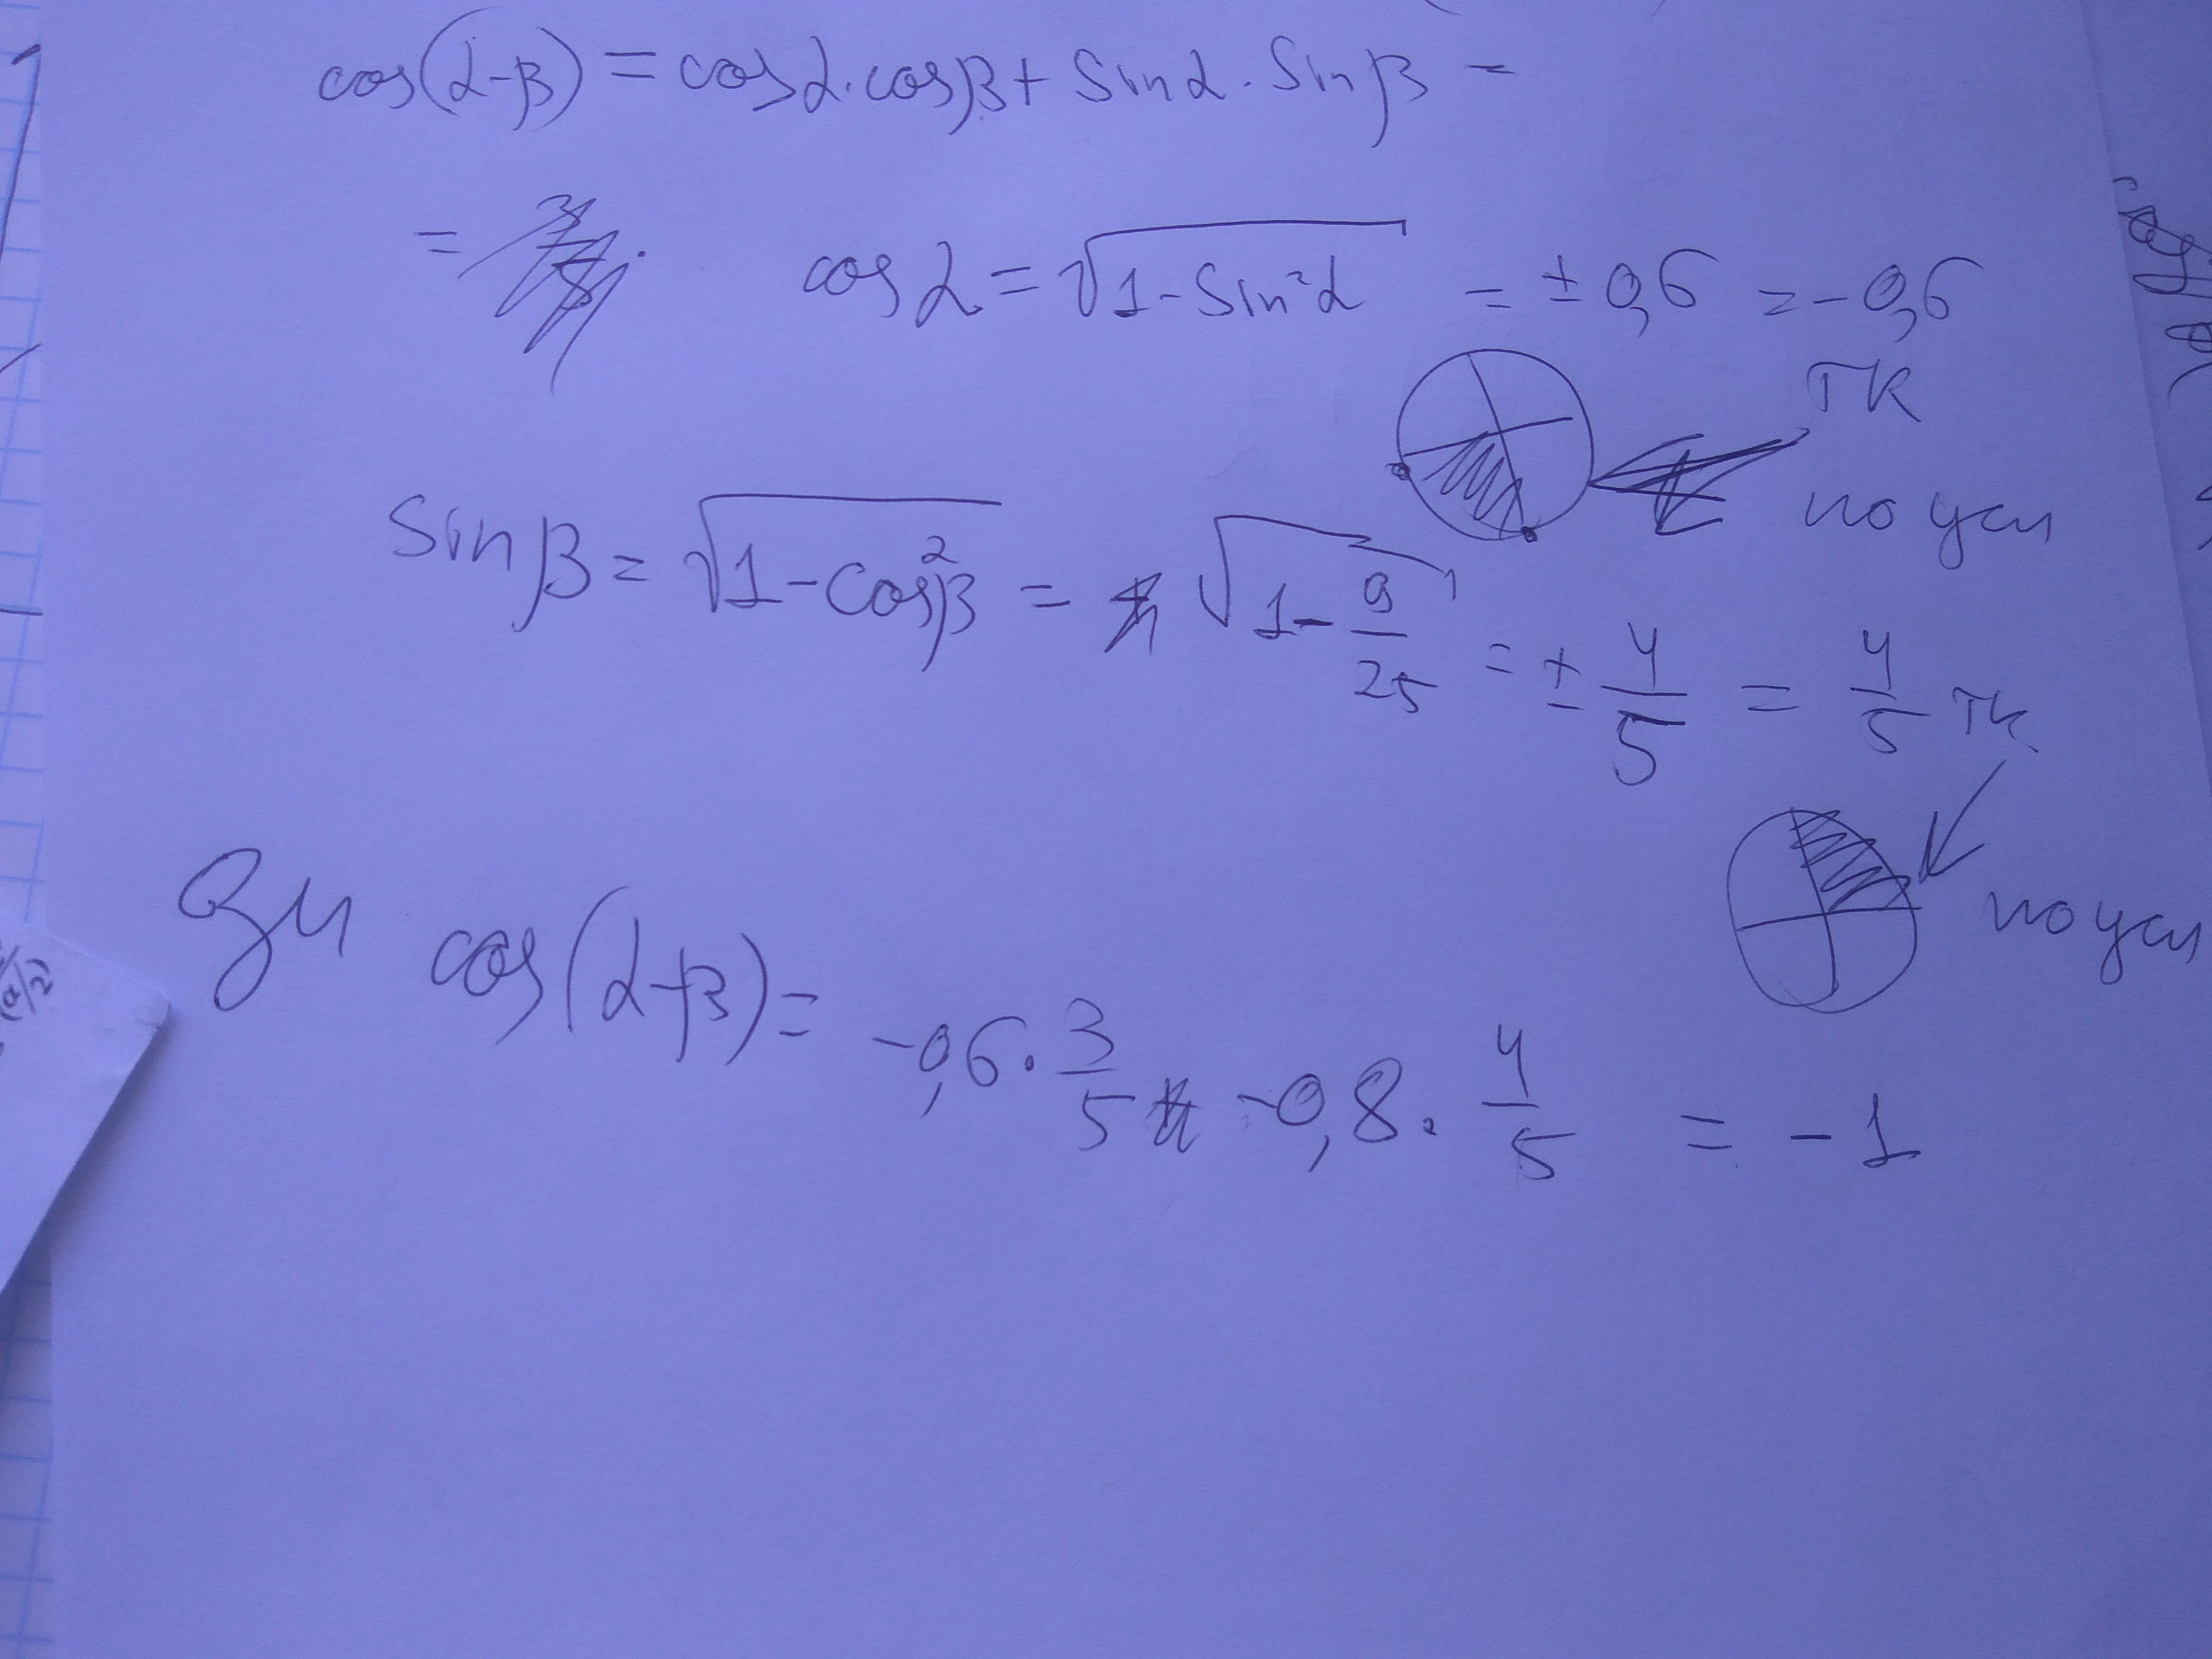 cos(α-β) = cosα·cosβ + Sinα·Sinβ =
= cosα = √1-Sin²α = ± 0,6 = -0,6
тк
по усл
Sinβ = √1-Cos²β = √1-9/25 = ± 4/5 = 4/5 тк
по усл
Зн cos(α-β) = -0,6·3/5 -0,8·4/5 = -1
(α/2)